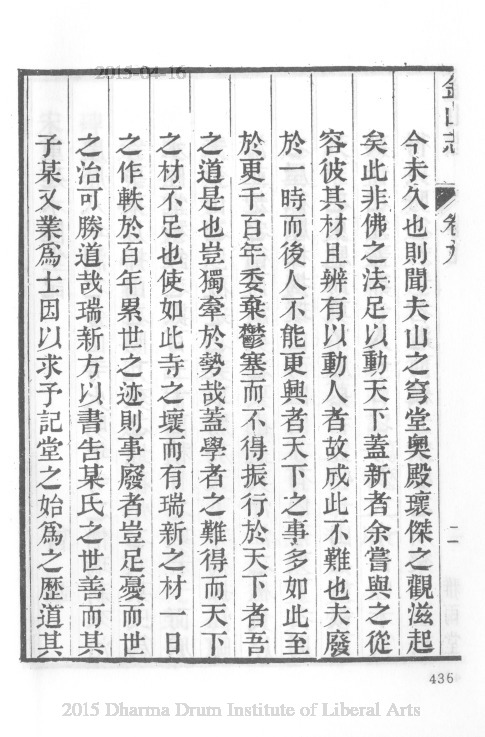 2015-04-16
金山志 卷九 二
今未久也則聞夫山之穹堂奧殿瓌傑之觀滋起
矣此非佛之法足以動天下蓋新者余嘗與之從
容彼其材且辨有以動人者故成此不難也夫廢
於一時而後人不能更興者天下之事多如此至
於更千百年委棄鬱塞而不得振行於天下者吾
之道是也豈獨牽於勢哉蓋學者之難得而天下
之材不足也使如此寺之壞而有瑞新之材一日
之作軼於百年累世之迹則事廢者豈足憂而世
之治可勝道哉瑞新方以書告某氏之世善而其
子某又業爲士因以求予記堂之始爲之歷道其
436
2015 Dharma Drum Institute of Liberal Arts